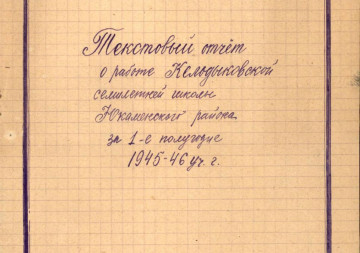 Текстовый отчёт
о работе Кельдыковской
семилетней школы
Юкаменского района
за 1-е полугодие
1945-46 уч. г.